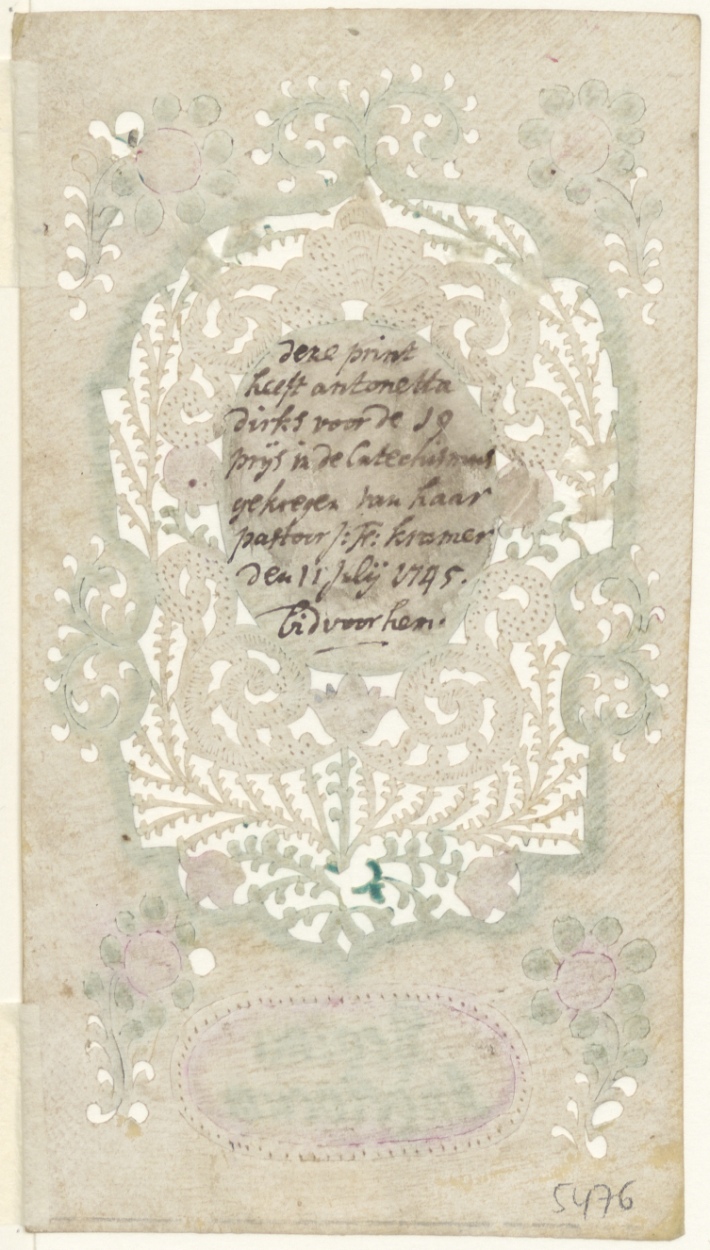 deze print
heeft antonetta
dirks voor de
prijs in de Catechismus
gekregen van haar
pastoor J: Fr: kramer
den 11 July 1745.
bid voor hem.
5476